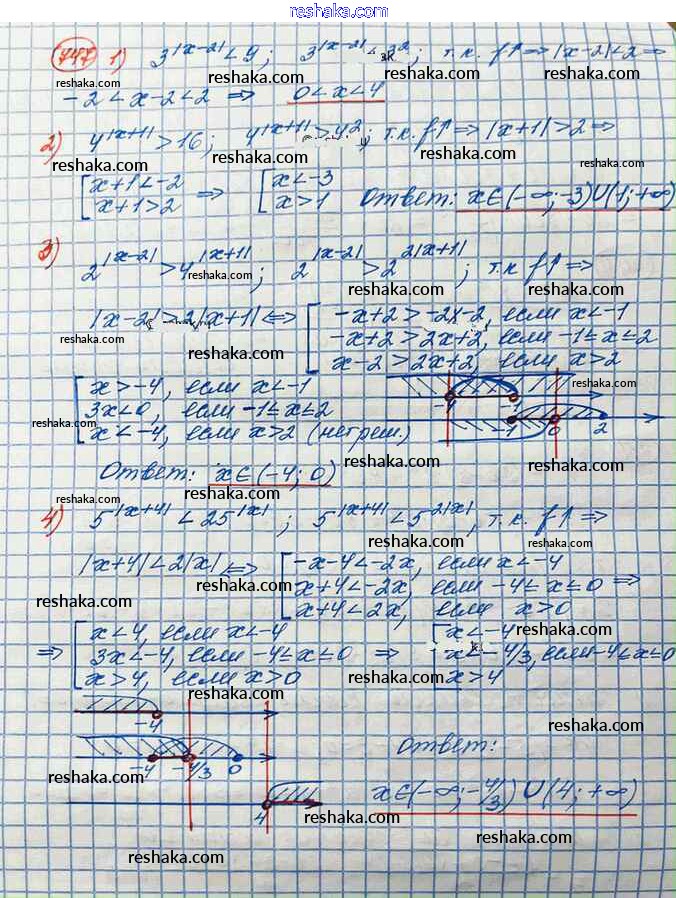 reshaka.com
747 1) 3^|x-2| < 9; 3^|x-2| < 3^2; т.к. f↑ ⇒ |x-2| < 2 ⇒
reshaka.com reshaka.com reshaka.com
-2 < x-2 < 2 ⇒ 0 < x < 4
2) 4^|x+1| > 16; 4^|x+1| > 4^2; т.к. f↑ ⇒ |x+1| > 2 ⇒
reshaka.com reshaka.com reshaka.com
[ x+1 < -2 ⇒ [ x < -3
x+1 > 2 x > 1 Ответ: x∈(-∞; -3)∪(1; +∞)
reshaka.com reshaka.com reshaka.com
3) 2^|x-2| > 4^|x+1|; 2^|x-2| > 2^2|x+1|; т.к. f↑ ⇒
reshaka.com reshaka.com reshaka.com
|x-2| > 2|x+1| ⇔ [ -x+2 > -2x-2, если x < -1
-x+2 > 2x+2, если -1 ≤ x ≤ 2
x-2 > 2x+2, если x > 2
reshaka.com reshaka.com reshaka.com
[ x > -4, если x < -1
3x < 0, если -1 ≤ x ≤ 2
x < -4, если x > 2 (нет реш.)
-4 -1
-1 0 2
reshaka.com reshaka.com reshaka.com
Ответ: x∈(-4; 0)
reshaka.com reshaka.com
4) 5^|x+4| < 25^|x|; 5^|x+4| < 5^2|x|, т.к. f↑ ⇒
reshaka.com reshaka.com
|x+4| < 2|x| ⇔ [ -x-4 < -2x, если x < -4
x+4 < -2x, если -4 ≤ x ≤ 0 ⇒
x+4 < 2x, если x > 0
reshaka.com reshaka.com reshaka.com
⇒ [ x < 4, если x < -4
3x < -4, если -4 ≤ x ≤ 0 ⇒
x > 4, если x > 0
[ x < -4
x < -4/3, если -4 ≤ x ≤ 0
x > 4
reshaka.com reshaka.com reshaka.com
-4
reshaka.com
-4 -4/3 0
Ответ:
reshaka.com reshaka.com
x∈(-∞; -4/3)∪(4; +∞)
4
reshaka.com reshaka.com
reshaka.com